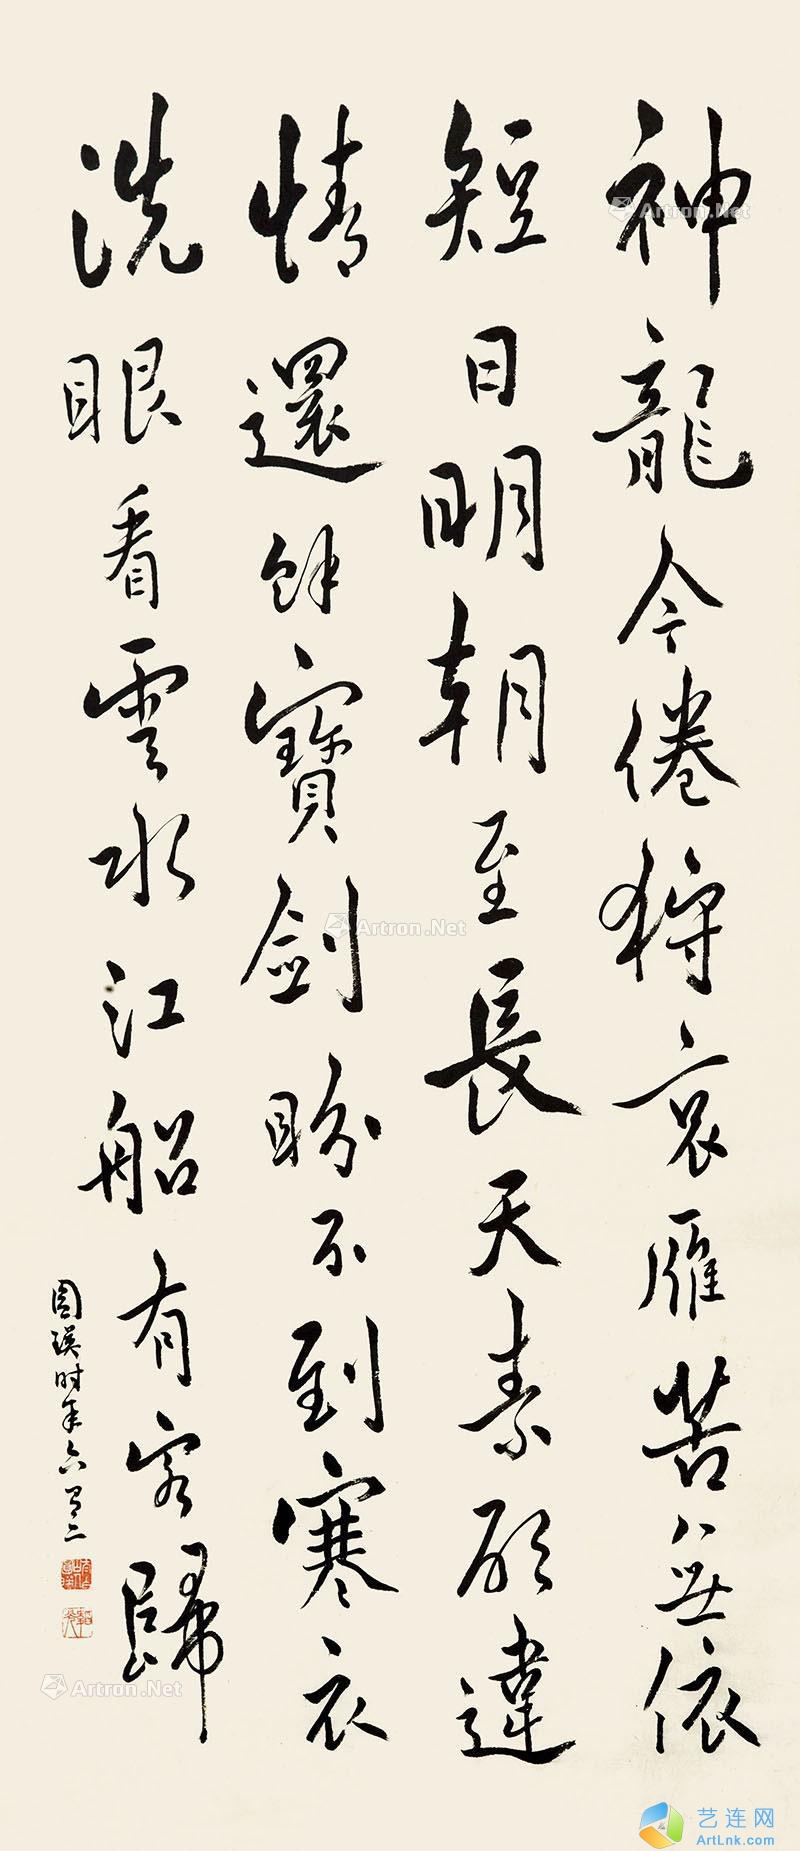 神龍今倦狩哀雁苦無依
短日明朝至長天素願違
情還餘寶劍盼不到寒衣
洗眼看雲水江船有客歸
圓瑛时年六有二
Artron.Net
Artron.Net
Artron.Net
艺连网
ArtLnk.com